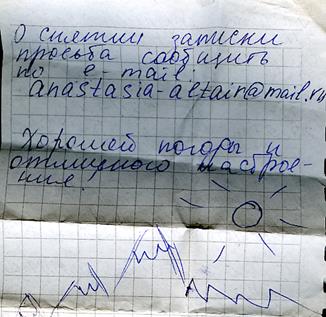 О снятии записки
просьба сообщить
по e-mail:
anastasia-altair@mail.ru
Хорошей погоды и
отличного настрое-
ния!